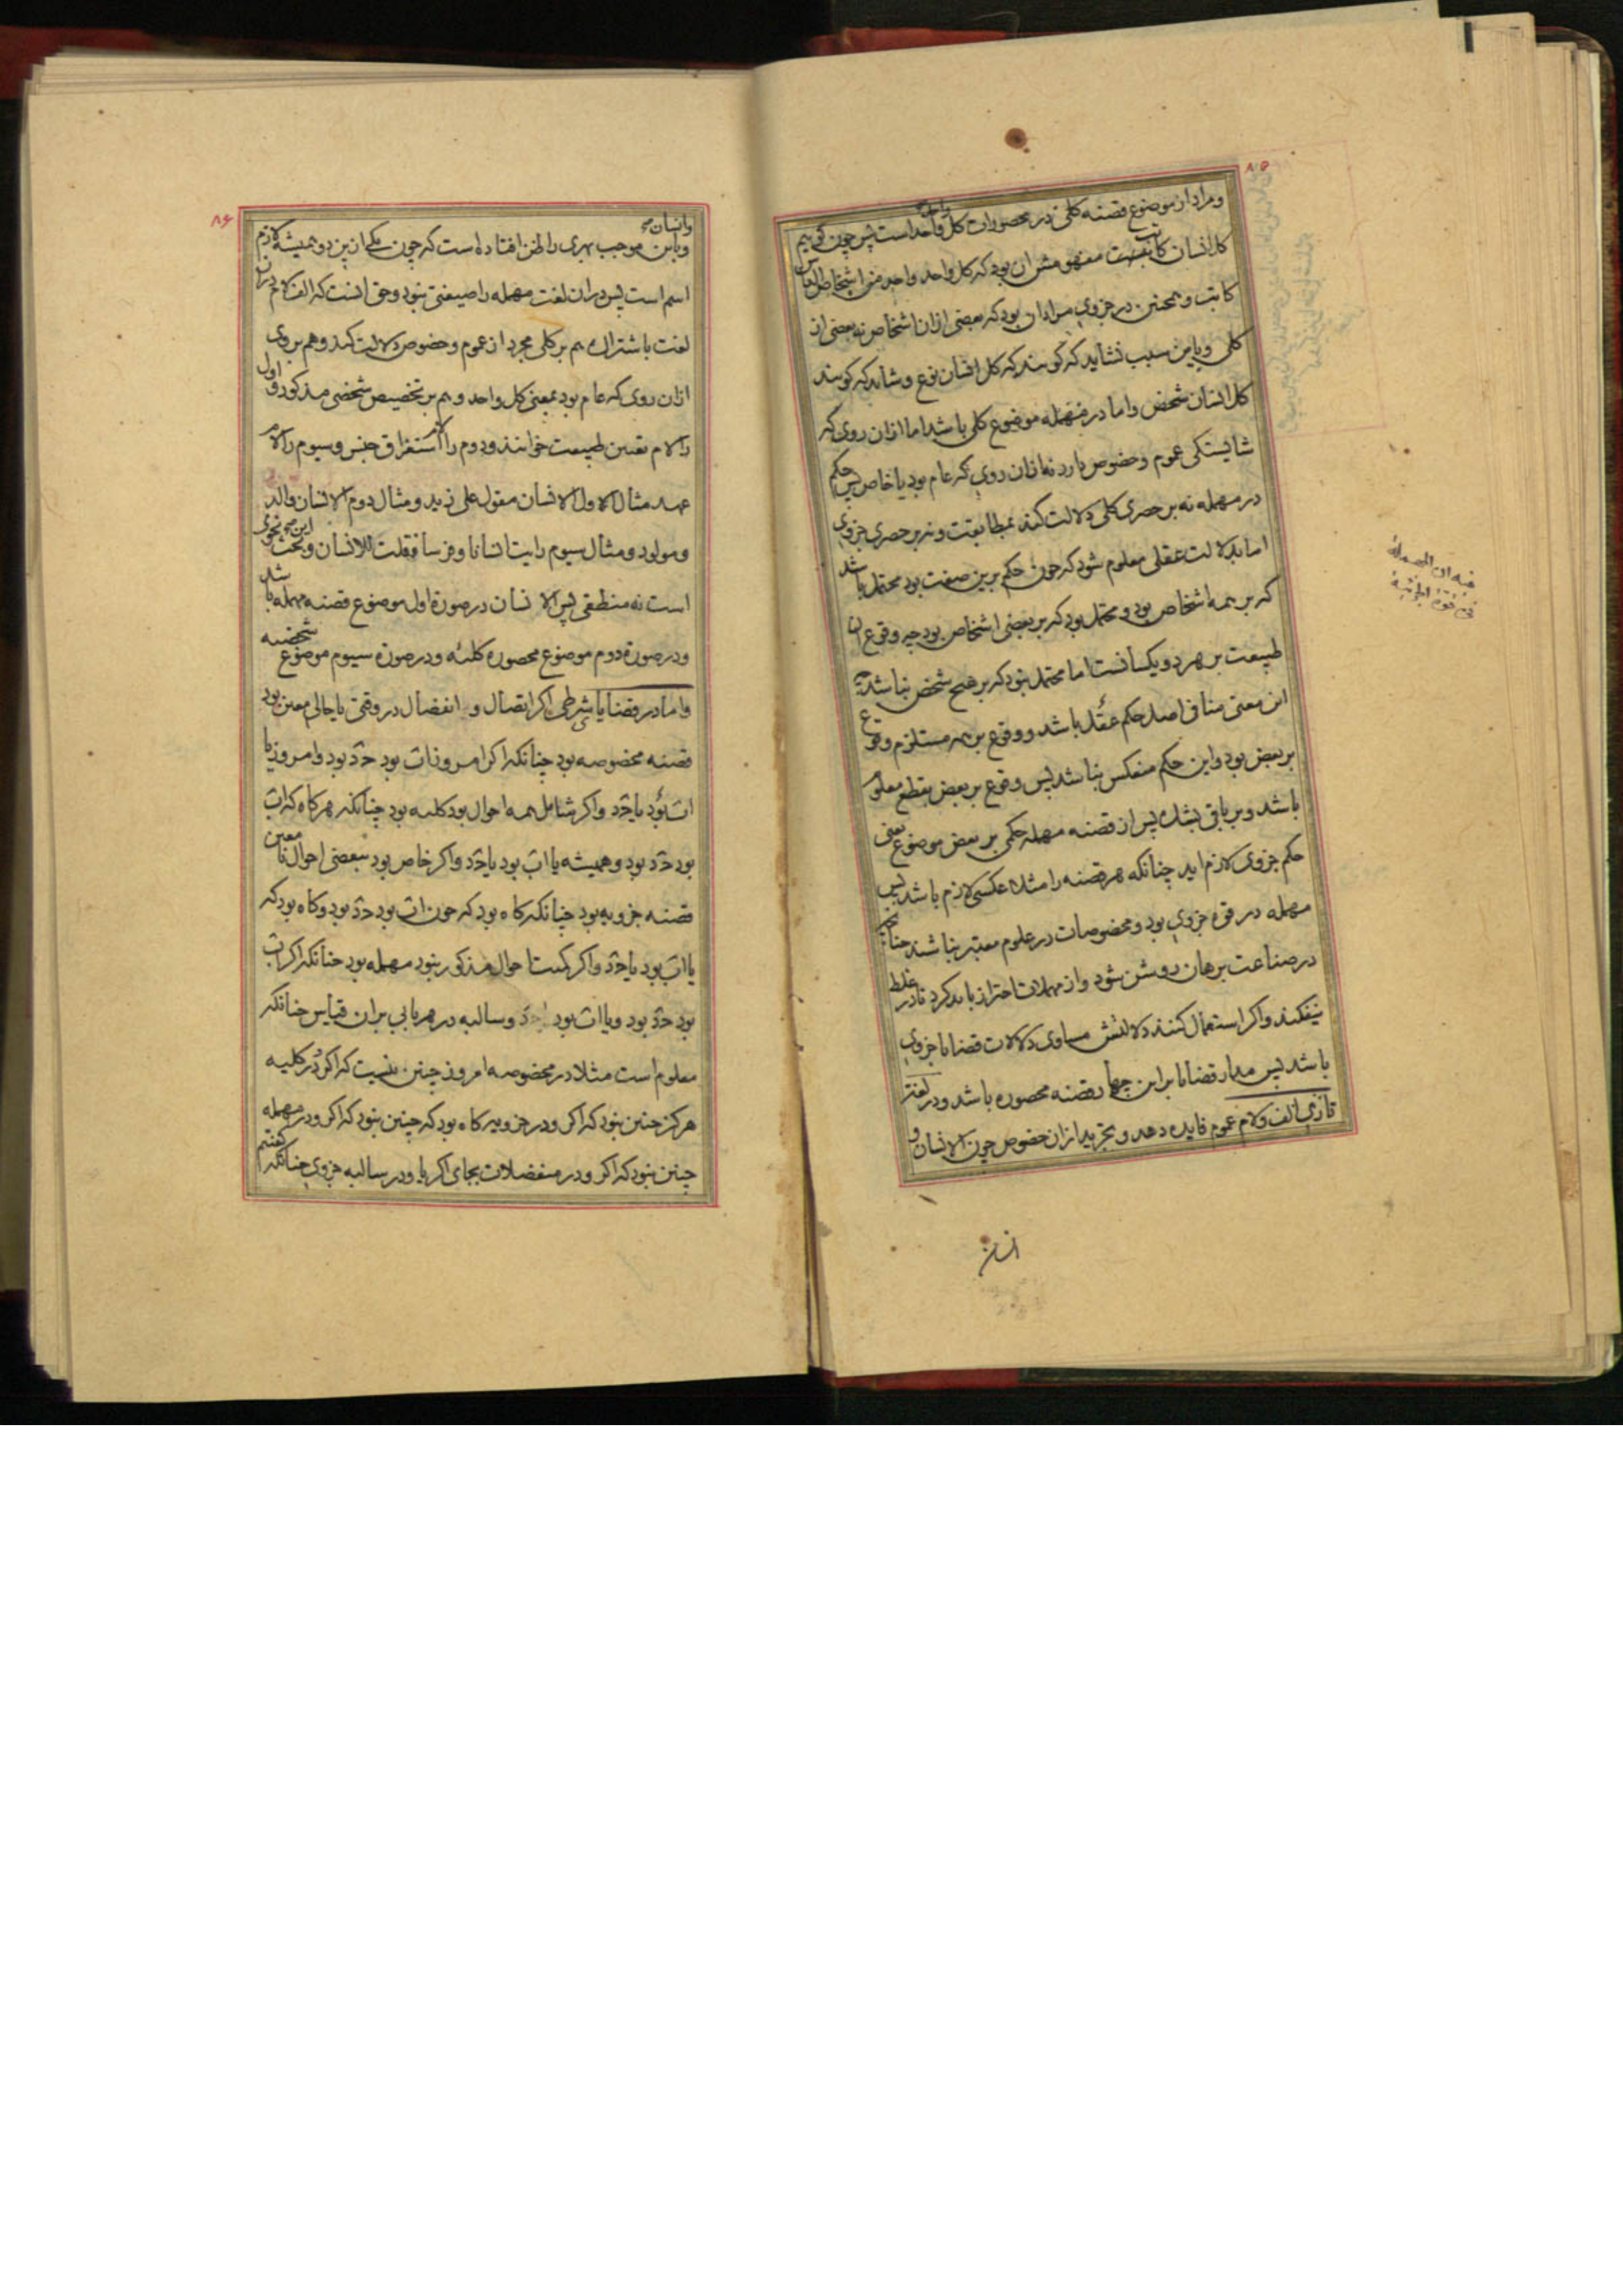 ۸۵
و مراد از موضوع قضیه کلی در محصورات کل واحد است پس چون کوییم
کل انسان کاتب مفهومش ان بود که کل واحد واحد من اشخاص الناس
کاتب و همچنین در جزوی مراد ان بود که بعضی ازان اشخاص نه بعضی از
کلی و باین سبب نشاید که کویند که کل انسان نوع و شاید که کویند
کل انسان شخص و اما در مهمله موضوع کلی باشد اما ازان روی که
شایستکی عموم و خصوص دارد نه ازان روی که عام بود یا خاص پس حکم
در مهمله نه بر حصری کلی دلالت کند بمطابقت و نه بر حصری جزوی
اما بدلالت عقلی معلوم شود که چون حکم برین صفت بود محتمل باشد
که بر همه اشخاص بود و محتمل بود که بر بعضی اشخاص بود چه وقوع ان
طبیعت بر هر دو یکسانست اما محتمل نبود که بر هیچ شخص نباشد چه
این معنی منافی اصل حکم عقل باشد و وقوع بر همه مستلزم وقوع
بر بعض بود و این حکم منعکس نباشد پس وقوع بر بعض بقطع معلوم
باشد و بر باقی بشک پس از قضیه مهمله حکمی بر بعض موضوع یعنی
حکم جزوی لازم اید چنانکه هر قضیه را مثلا عکسی لازم باشد پس
مهمله در قوه جزوی بود و مخصوصات در علوم معتبر نباشند چنانکه
در صناعت برهان روشن شود و از مهملات احتراز باید کرد تا در غلط
نیفکند و اکر استعمال کنند دلالتش مساوی دلالات قضایا جزوی
باشد پس مدار قضایا براین چهار قضیه محصوره باشد و در لغت
تازی الف و لام عموم فایده دهد و تجرید ازان خصوص چون الانسان و
فی ان المهملة
فی قوة الجزئیة
۸۶
وانسان
و باین موجب بهری را ظن افتاده است که چون حکم ازین دو همیشه لازم
اسم است پس دران لغت مهمله را صیغتی نبود و حق انست که الف لام دران
لغت باشتراک هم بر کلی مجرد از عموم و خصوص دلالت کند و هم بر وی
ازان روی که عام بود بمعنی کل واحد و هم بر تخصیص شخصی مذکور و اول
را لام تعیین طبیعت خوانند و دوم را لام استغراق جنس و سیوم را لام
عهد مثال الاول الانسان مقول علی زید و مثال دوم الانسان والد
و مولود و مثال سیوم رایت انسانا و فرسا فقلت للانسان و این بحث نحوی
است نه منطقی پس الانسان در صورة اول موضوع قضیه مهمله باشد
و در صورة دوم موضوع محصوره کلیه و در صورة سیوم موضوع شخصیه
و اما در قضایا شرطی اکر اتصال و انفصال در وقتی یا حالی معین بود
قضیه مخصوصه بود چنانکه اکر امروز اب بود جد بود و امروز یا
اب بود یا جد و اکر شامل همه احوال بود کلیه بود چنانکه هر کاه که اب
بود جد بود و همیشه یا اب بود یا جد و اکر خاص بود ببعضی احوال نامعین
قضیه جزویه بود چنانکه کاه بود که چون اب بود جد بود و کاه بود که
یا اب بود یا جد و اکر کمیت احوال مذکور نبود مهمله بود چنانکه اکر اب
بود جد بود و یا اب بود جد و سالبه در هر بابی بران قیاس چنانکه
معلوم است مثلا در مخصوصه امروز چنین نیست که اکر و در کلیه
هرکز چنین نبود که اکر و در جزویه کاه بود که چنین نبود که اکر و در مهمله
چنین نبود که اکر و در منفصلات بجای اکر یا و در سالبه جزوی چنانکه کفتیم